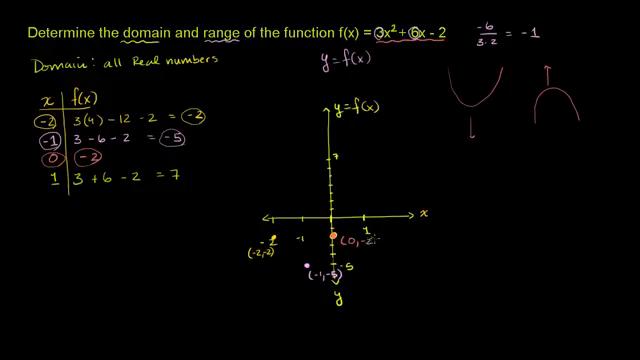 Determine the domain and range of the function f(x) = 3x² + 6x - 2
-6
3·2
= -1
Domain: all Real numbers
y = f(x)
x f(x)
-2 3(4) - 12 - 2 = -2
-1 3 - 6 - 2 = -5
0 -2
1 3 + 6 - 2 = 7
y = f(x)
7
x
-2 -1 1
(-2,-2)
(0,-2
-5
(-1,-5)
y